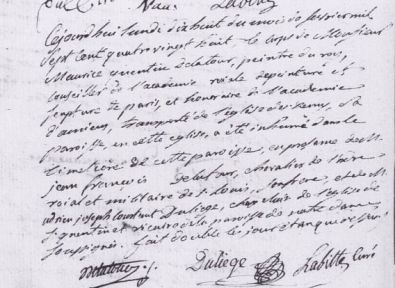 Cejourdhui lundi dixhuit du mois de fevrier mil
Sept Cent quatrevingt huit. le corps de Monsieur
Maurice quentin delatour, peintre du roi,
Conseiller de l'academie roiale de peinture et
sculpture de paris, et honoraire de l'academie
d'amiens, transporté de l'eglise de sa
paroisse, en cette eglise, a été inhumé dans le
Cimetiere de cette paroisse, en presence de M.
jean francois Delatour, chevalier de l'ordre
roial et militaire de St. Louis, son frere, et de M.
adrien joseph Constant Duliege, chapelain de l'eglise de
St. quentin et vicaire de la paroisse de notre dame
soussignés. fait double le jour et an que dessus.
Delatour Duliege Labitte Curé